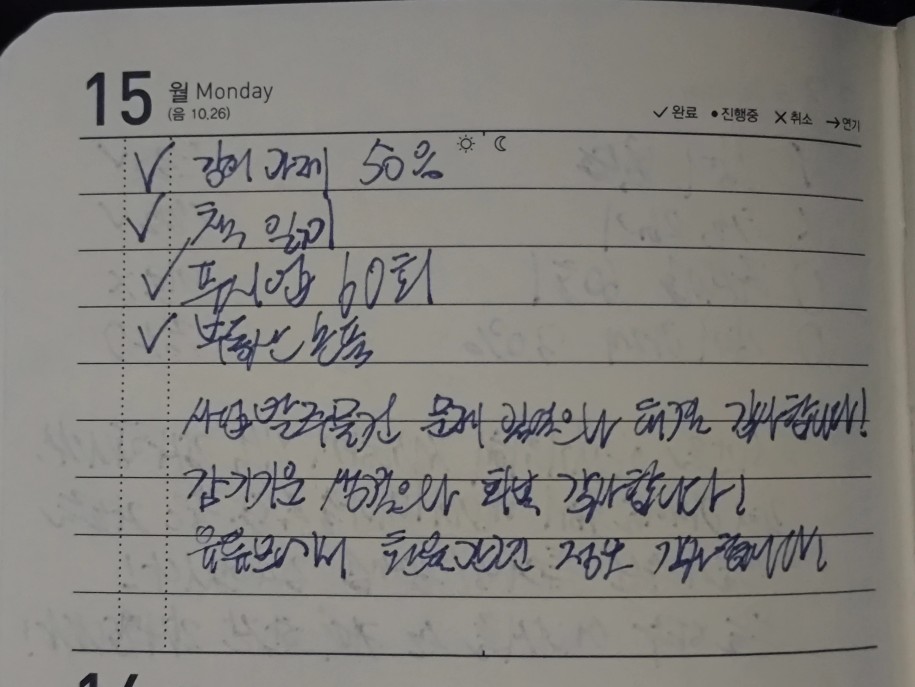 15 월 Monday
(음 10.26)
✓완료 •진행중 ✕취소 →연기
✓ 강의 과제 50%
✓ 책 읽기
✓ 푸시업 60회
✓
사업 발주물건 문제 있었으나 해결 감사합니다!
감기기운 있었으나 회복 감사합니다!
감사합니다!